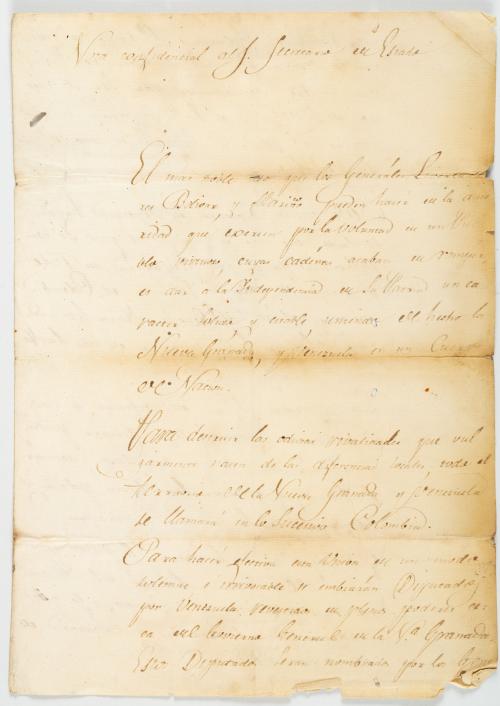 Nota confidencial al S. Secretario en Estado
El mas noble uso que los Generales
res Bolivar y Mariño pueden hacer en la auto
ridad que exercen por la voluntad de un Pue
blo virtuoso cuyas cadenas acaban de romper
es dar á la Independencia de la Patria un ca
racter solido y estable reuniendo de hecho la
Nueva Granada, y Venezuela en un Cuerpo
de Nacion.
Para destruir las odiosas rivalidades que vul
garmente nacen de las diferencias locales, todo el
territorio de la Nueva Granada y Venezuela
se llamará en lo sucesivo Colombia.
Para hacer efectiva esta Union de un modo
solemne e inviolable se embiarán Diputados
por Venezuela revestidos de plenos poderes cer
ca del Govierno General de la N.ª Granada
Estos Diputados seran nombrados por los